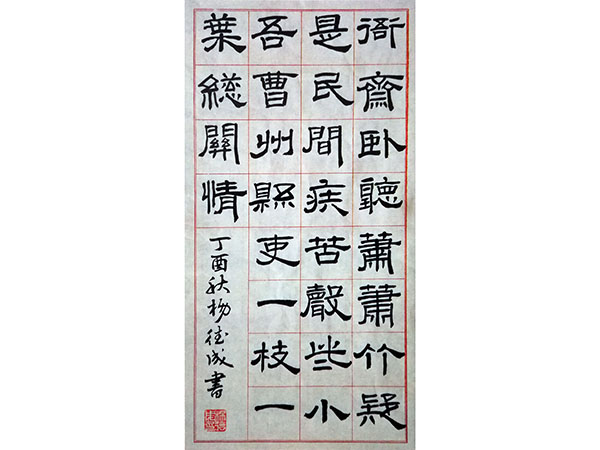 衙齋卧聽蕭蕭竹疑
是民間疾苦聲些小
吾曹州縣吏一枝一
葉總關情
丁酉秋杨德成書